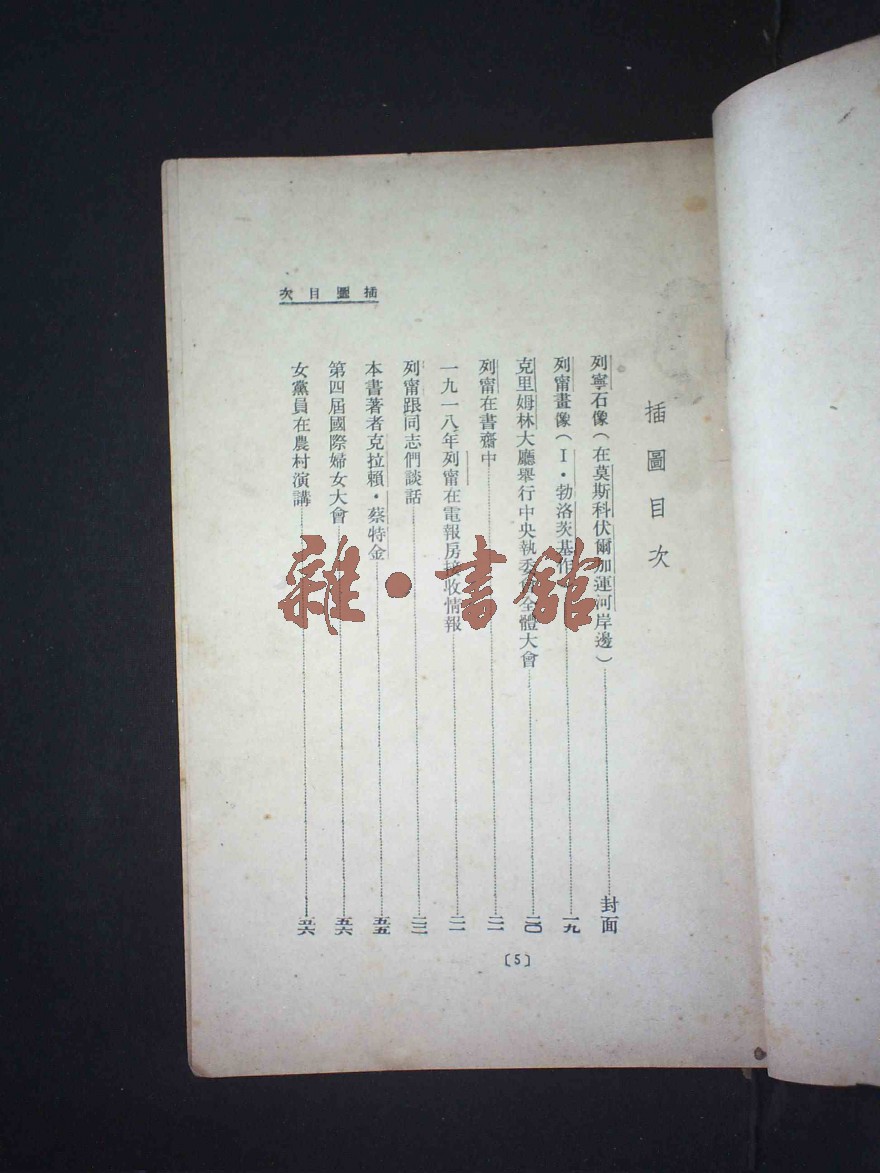 插圖目次
插圖目次
列寧石像(在莫斯科伏爾加運河岸邊)……封面
列甯畫像(I·勃洛茨基作)……一九
克里姆林大廳舉行中央執委會全體大會……二〇
列甯在書齋中……二一
一九一八年列甯在電報房接收情報……二一
列甯跟同志們談話……二二
本書著者克拉賴·蔡特金……五五
第四屆國際婦女大會……五六
女黨員在農村演講……五六
〔5〕
雜·書館